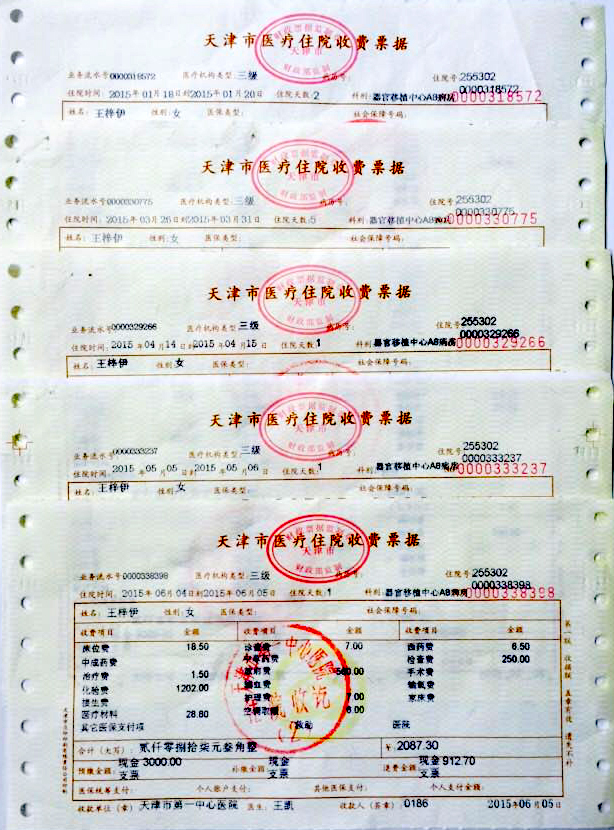 天津市医疗住院收费票据
业务流水号0000318572 医疗机构类型:三级 病历号: 住院号:255302
0000318572
住院时间:2015年01月18日到2015年01月20日 住院天数:2 科别:器官移植中心AB病房 0000318572
姓名:王梓伊 性别:女 医保类型: 社会保障号码:
天津市医疗住院收费票据
业务流水号0000330775 医疗机构类型:三级 病历号: 住院号255302
0000330775
住院时间:2015年03月26日到2015年03月31日 住院天数:5 科别:器官移植中心AB病房 0000330775
姓名:王梓伊 性别:女 医保类型: 社会保障号码:
天津市医疗住院收费票据
业务流水号0000329266 医疗机构类型:三级 病历号: 住院号255302
0000329266
住院时间:2015年04月14日到2015年04月15日 住院天数:1 科别:器官移植中心AB病房 0000329266
姓名:王梓伊 性别:女 医保类型: 社会保障号码:
天津市医疗住院收费票据
业务流水号0000333237 医疗机构类型:三级 病历号: 住院号:255302
0000333237
住院时间:2015年05月05日到2015年05月06日 住院天数:1 科别:器官移植中心AB病房 0000333237
姓名:王梓伊 性别:女 医保类型: 社会保障号码:
天津市医疗住院收费票据
业务流水号0000338398 医疗机构类型:三级 病历号: 住院号:255302
0000338398
住院时间:2015年06月04日到2015年06月05日 住院天数:1 科别:器官移植中心AB病房 0000338398
姓名:王梓伊 性别:女 医保类型: 社会保障号码:
收费项目 金额 收费项目 金额 收费项目 金额
床位费 18.50 诊查费 7.00 西药费 6.50
中成药费 中草药费 检查费 250.00
治疗费 1.50 放射费 手术费
化验费 1202.00 输血费 输氧费
接生费 护理费 7.00 家床费
医疗材料 28.80 空调取暖 6.00
其它医保支付项 救助 医院
合计(大写):贰仟零捌拾柒元叁角整 ¥:2087.30
预缴金额:现金3000.00 支票 补缴金额:现金 支票 退费金额:现金912.70 支票
医保统筹支付: 个人账户支付: 其他医保支付: 个人支付金额:
收款单位(章)天津市第一中心医院 医生:王凯 收款人(签章)0186 2015年06月05日